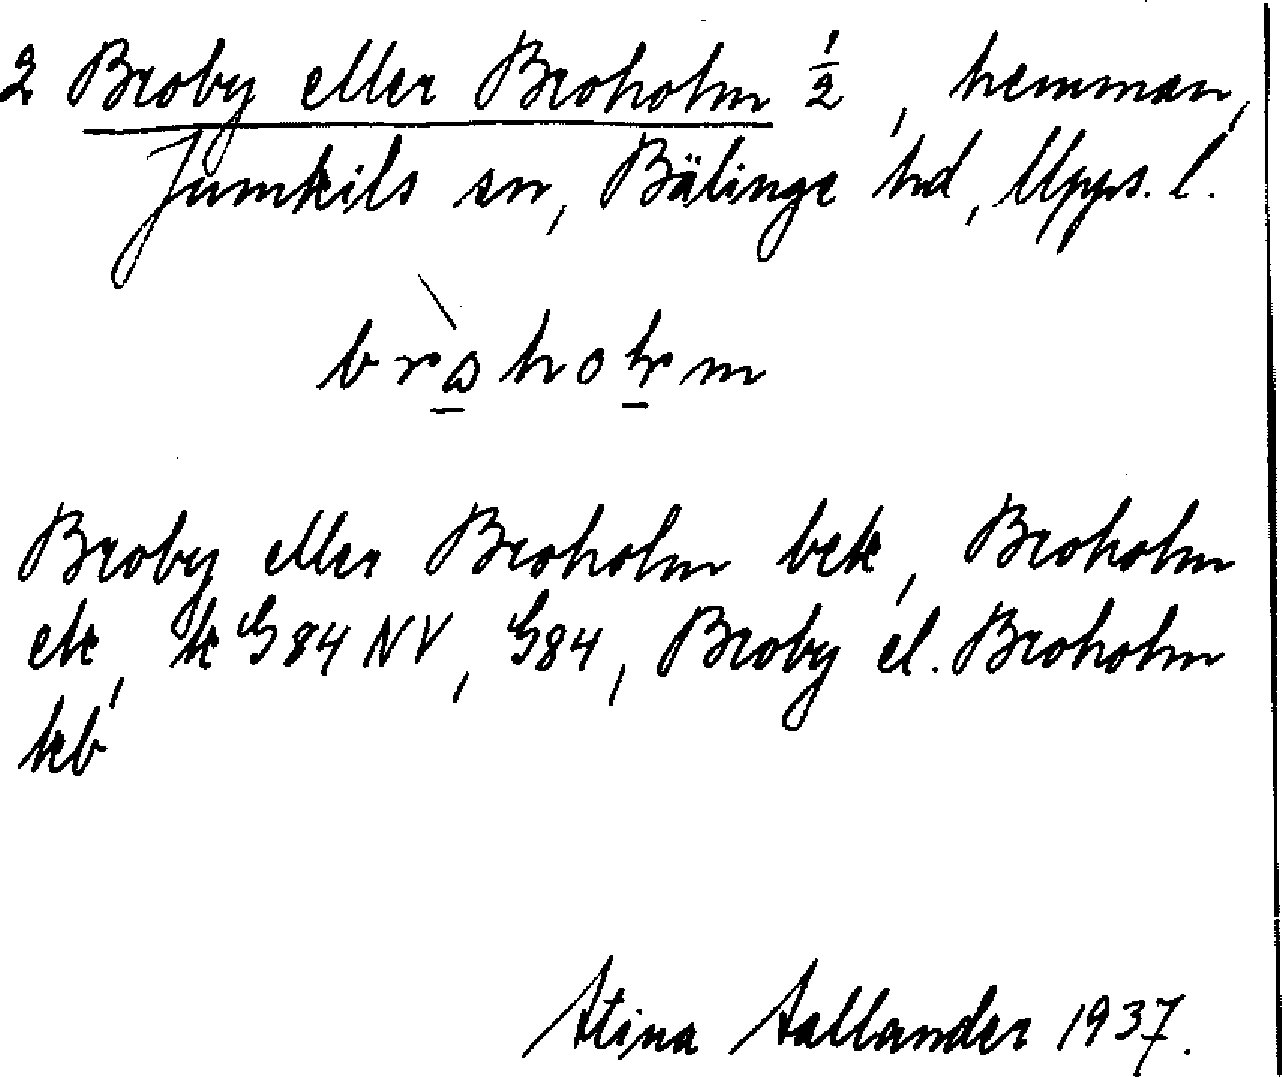 2 Broby eller Broholm 1/2, hemman,
Jumkils sn, Bälinge hd, Upps. l.
Broby eller Broholm bek, Broholm
ek, k G84 NV, G84, Broby el. Broholm
kb
Stina Sallander 1937.